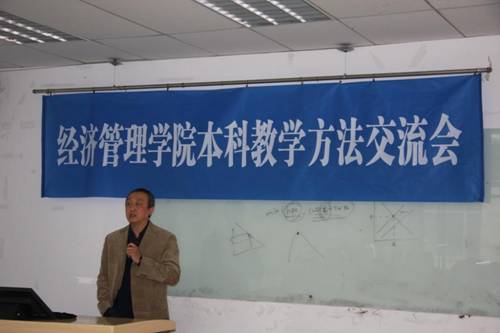 经济管理学院本科教学方法交流会